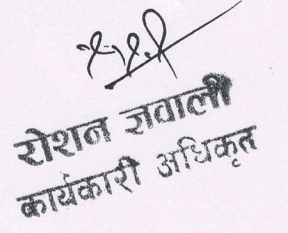 रोशन ज्ञवाली
कार्यकारी अधिकृत